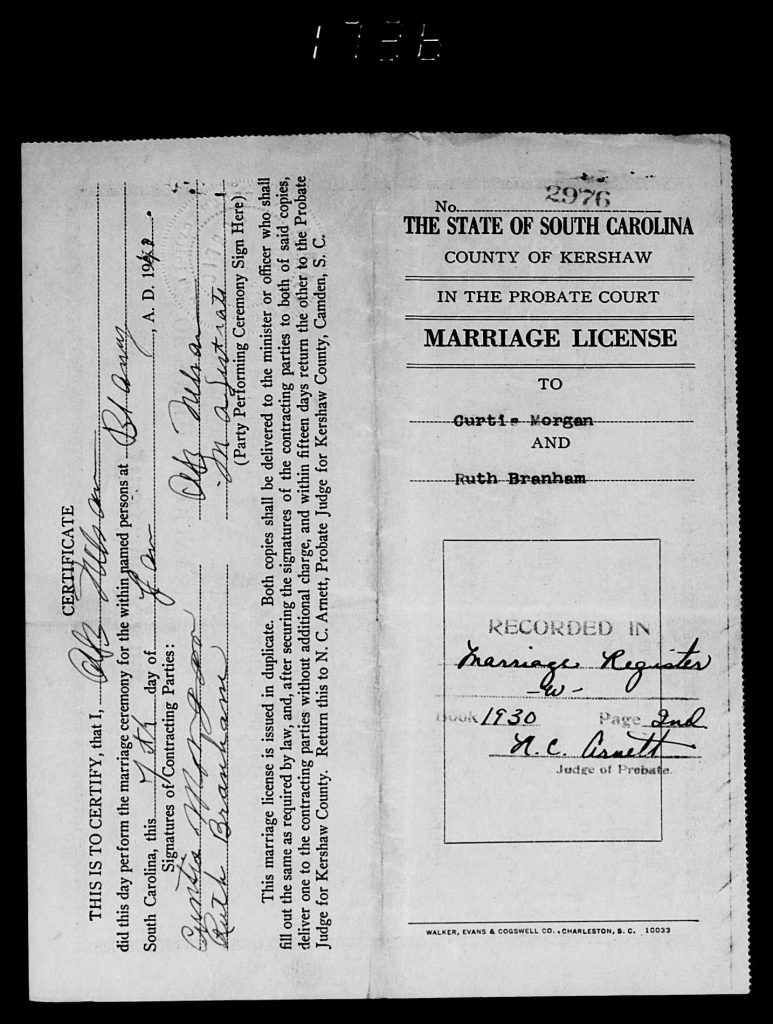 1736
CERTIFICATE
THIS IS TO CERTIFY, that I, Nelson
did this day perform the marriage ceremony for the within named persons at Blaney
South Carolina, this 7th day of Jan, A. D. 19
Signatures of Contracting Parties:
Curtis Morgan
Ruth Branham
Nelson
Magistrate
(Party Performing Ceremony Sign Here)
This marriage license is issued in duplicate. Both copies shall be delivered to the minister or officer who shall
fill out the same as required by law, and, after securing the signatures of the contracting parties to both of said copies,
deliver one to the contracting parties without additional charge, and within fifteen days return the other to the Probate
Judge for Kershaw County. Return this to N. C. Arnett, Probate Judge for Kershaw County, Camden, S. C.
No. 2976
THE STATE OF SOUTH CAROLINA
COUNTY OF KERSHAW
IN THE PROBATE COURT
MARRIAGE LICENSE
TO
Curtis Morgan
AND
Ruth Branham
RECORDED IN
Marriage Register
-W-
Book 1930 Page 2nd
N. C. Arnett
Judge of Probate
WALKER, EVANS & COGSWELL CO., CHARLESTON, S. C. 10033